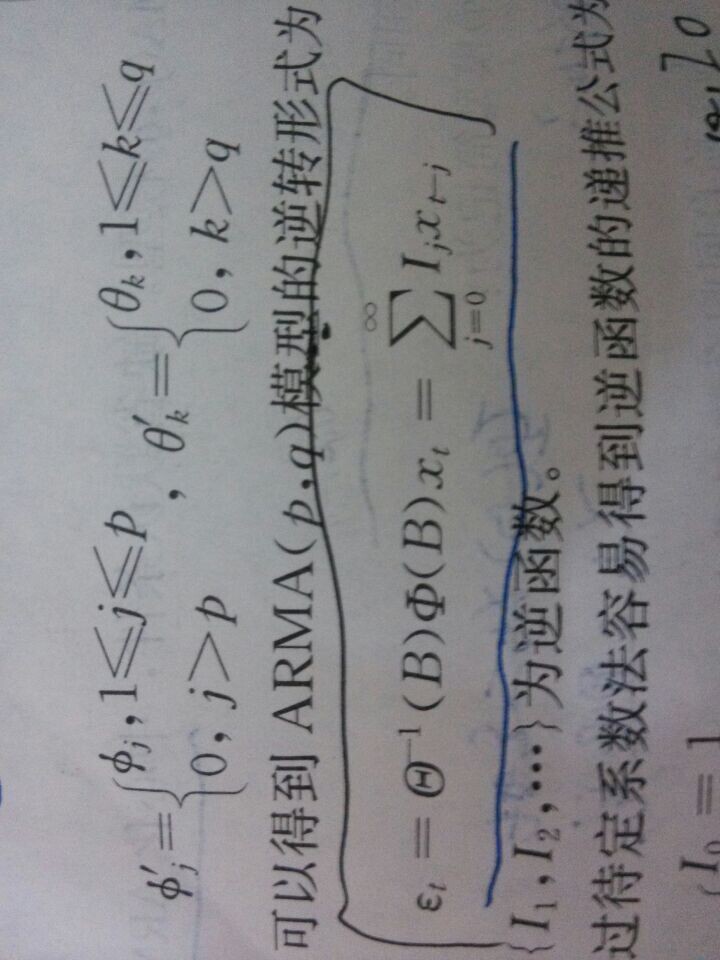 φ′ⱼ = { φⱼ, 1⩽j⩽p ; 0, j>p , θ′ₖ = { θₖ, 1⩽k⩽q ; 0, k>q
可以得到 ARMA(p,q)模型的逆转形式为
εₜ = Θ⁻¹(B)Φ(B)xₜ = ∑_{j=0}^{∞} Iⱼxₜ₋ⱼ
{I₁,I₂,…}为逆函数。
过待定系数法容易得到逆函数的递推公式为
{ I₀ = 1